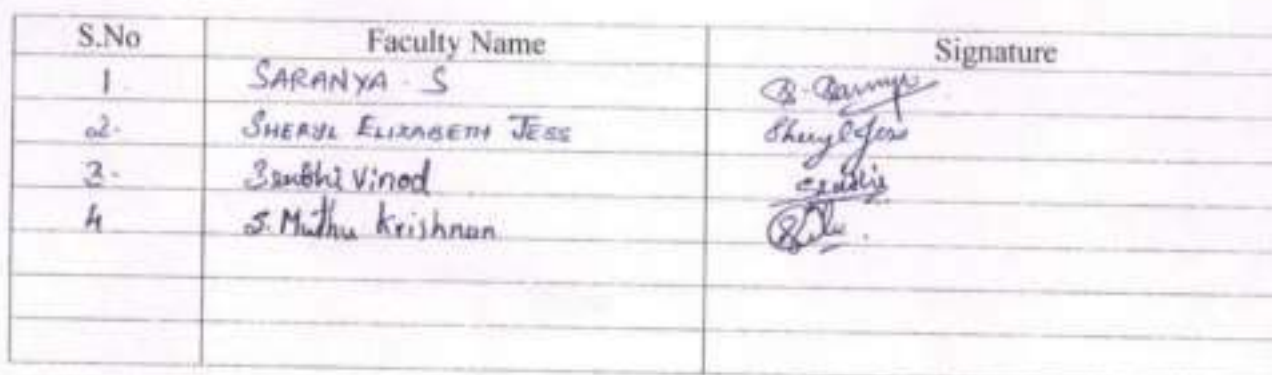 S.No Faculty Name Signature
1. SARANYA . S
2. SHERYL ELIZABETH JESS Sheryl Jess
3. Vinod
4 S. Muthu Krishnan